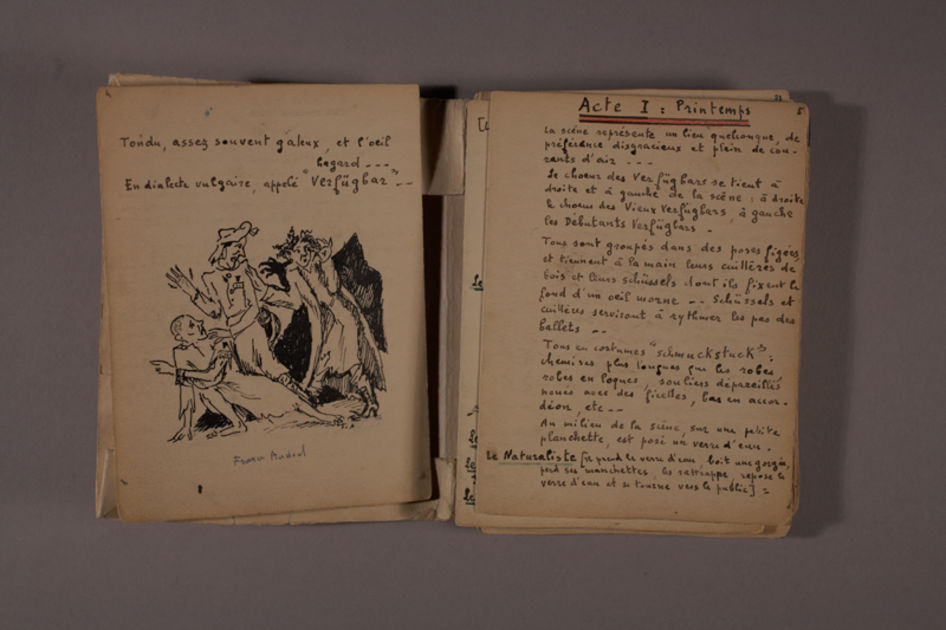 Tondu, assez souvent galeux, et l'oeil
hagard ---
En dialecte vulgaire, appelé "Verfügbar" --
Acte I : Printemps
5
La scène représente un lieu quelconque, de
préférence disgracieux et plein de cou-
rants d'air ---
Le choeur des Verfügbars se tient à
droite et à gauche de la scène : à droite
le choeur des Vieux Verfügbars, à gauche
les Débutants Verfügbars.
Tous sont groupés dans des poses figées
et tiennent à la main leurs cuillères de
bois et leurs schüssels dont ils fixent le
fond d'un oeil morne -- Schüssels et
cuillères serviront à rythmer les pas des
ballets --
Tous en costumes "schmuckstuck" :
chemises plus longues que les robes
robes en loques, souliers dépareillés
noués avec des ficelles, bas en accor-
déon, etc --
Au milieu de la scène, sur une petite
planchette, est posé un verre d'eau.
Le Naturaliste [il prend le verre d'eau, boit une gorgée,
perd ses manchettes, les rattrappe, repose le
verre d'eau et se tourne vers le public] =